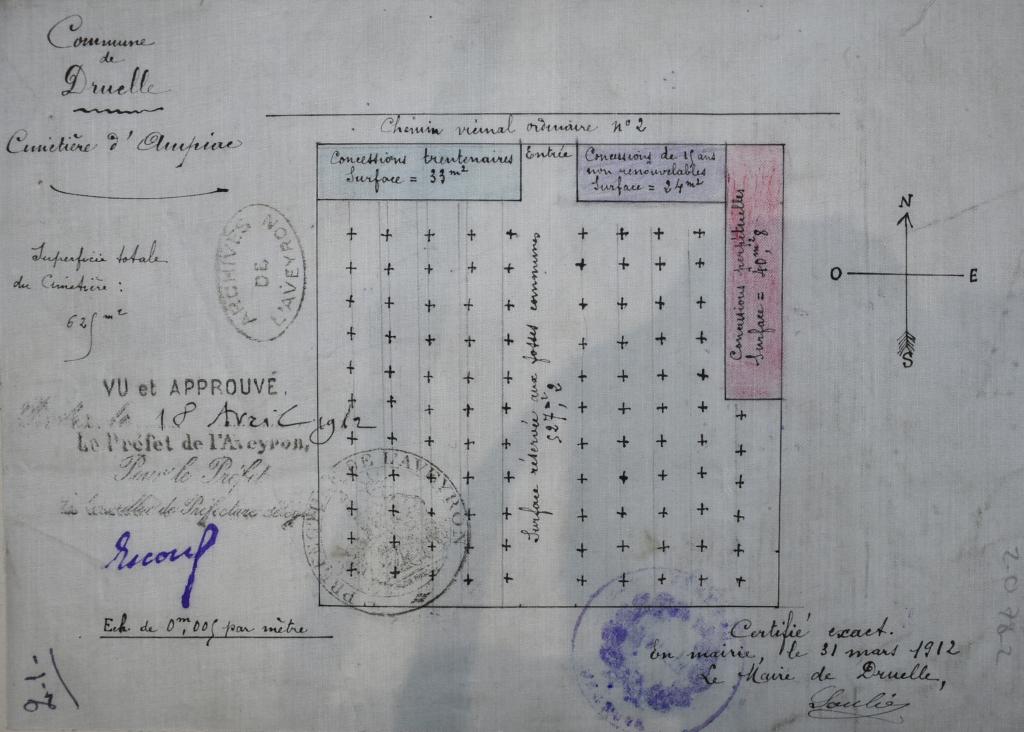 Commune
de
Druelle
Cimetière d'Ampiac
Superficie totale
du Cimetière :
625 m²
ARCHIVES
DE
L'AVEYRON
VU et APPROUVÉ,
le 18 Avril 1912
Le Préfet de l'Aveyron,
Pour le Préfet
Le Conseiller de Préfecture délégué
Ech. de 0m,005 par mètre
Chemin vicinal ordinaire n° 2
Concessions trentenaires
Surface = 33 m²
Entrée
Concessions de 15 ans
non renouvelables
Surface = 24 m²
Concessions perpétuelles
Surface = 40 m², 8
Surface réservée aux fosses communes
527 m², 2
PRÉFECTURE DE L'AVEYRON
N
O
E
S
Certifié exact.
En mairie, le 31 mars 1912
Le Maire de Druelle,
20782